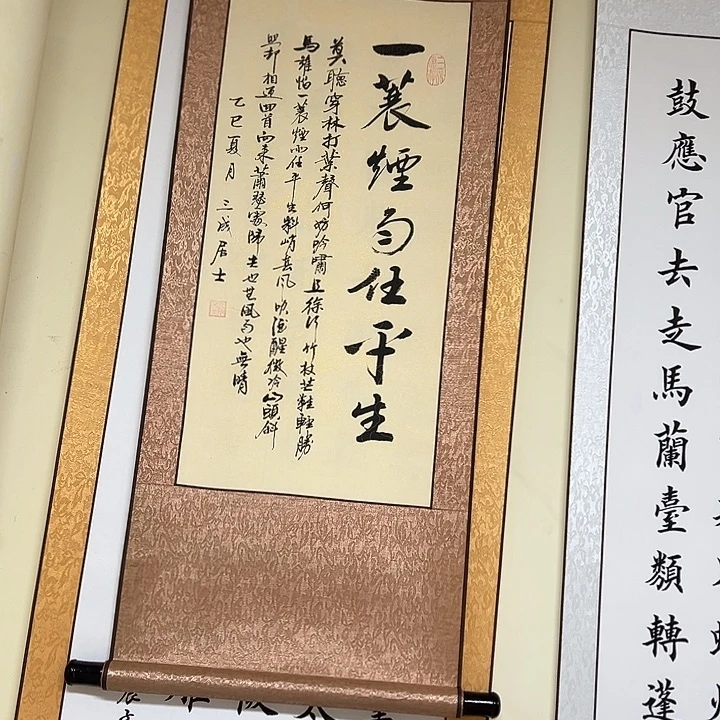 鼓應官去走馬蘭臺類轉蓬
一蓑煙雨任平生
莫聽穿林打葉聲何妨吟嘯且徐行竹杖芒鞋輕勝
馬誰怕一蓑煙雨任平生料峭春風吹酒醒微冷山頭斜
照却相迎回首向來蕭瑟處歸去也無風雨也無晴
乙巳夏月 三成居士